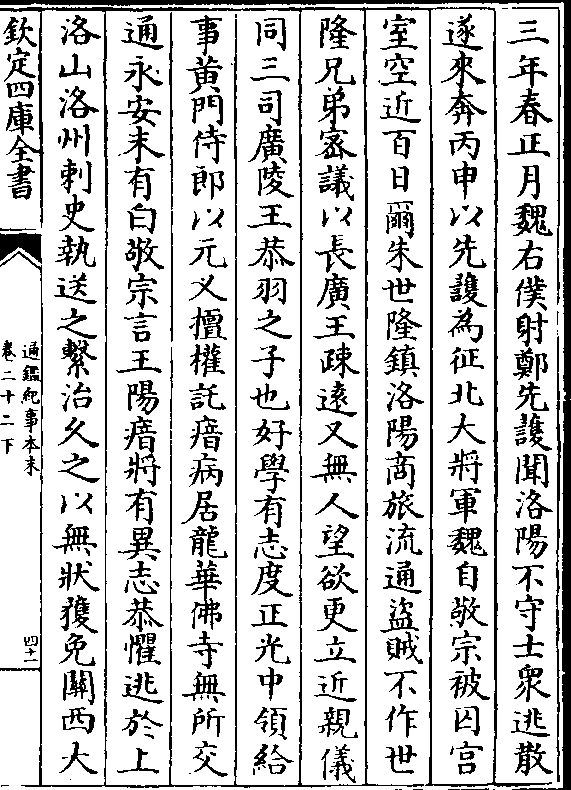 三年春正月魏右僕射鄭先護聞洛陽不守士衆逃散
遂來奔丙申以先護為征北大將軍魏自敬宗被囚宮
室空近百日爾朱世隆鎮洛陽商旅流通盜賊不作世
隆兄弟密議以長廣王疎遠又無人望欲更立近親儀
同三司廣陵王恭羽之子也好學有志度正光中領給
事黄門侍郎以元义擅權託瘖病居龍華佛寺無所交
通永安末有白敬宗言王陽瘖將有異志恭懼逃於上
洛山洛州刺史執送之繫治久之以無狀獲免關西大
欽定四庫全書
通鑑紀事本末
卷二十二下
四十一